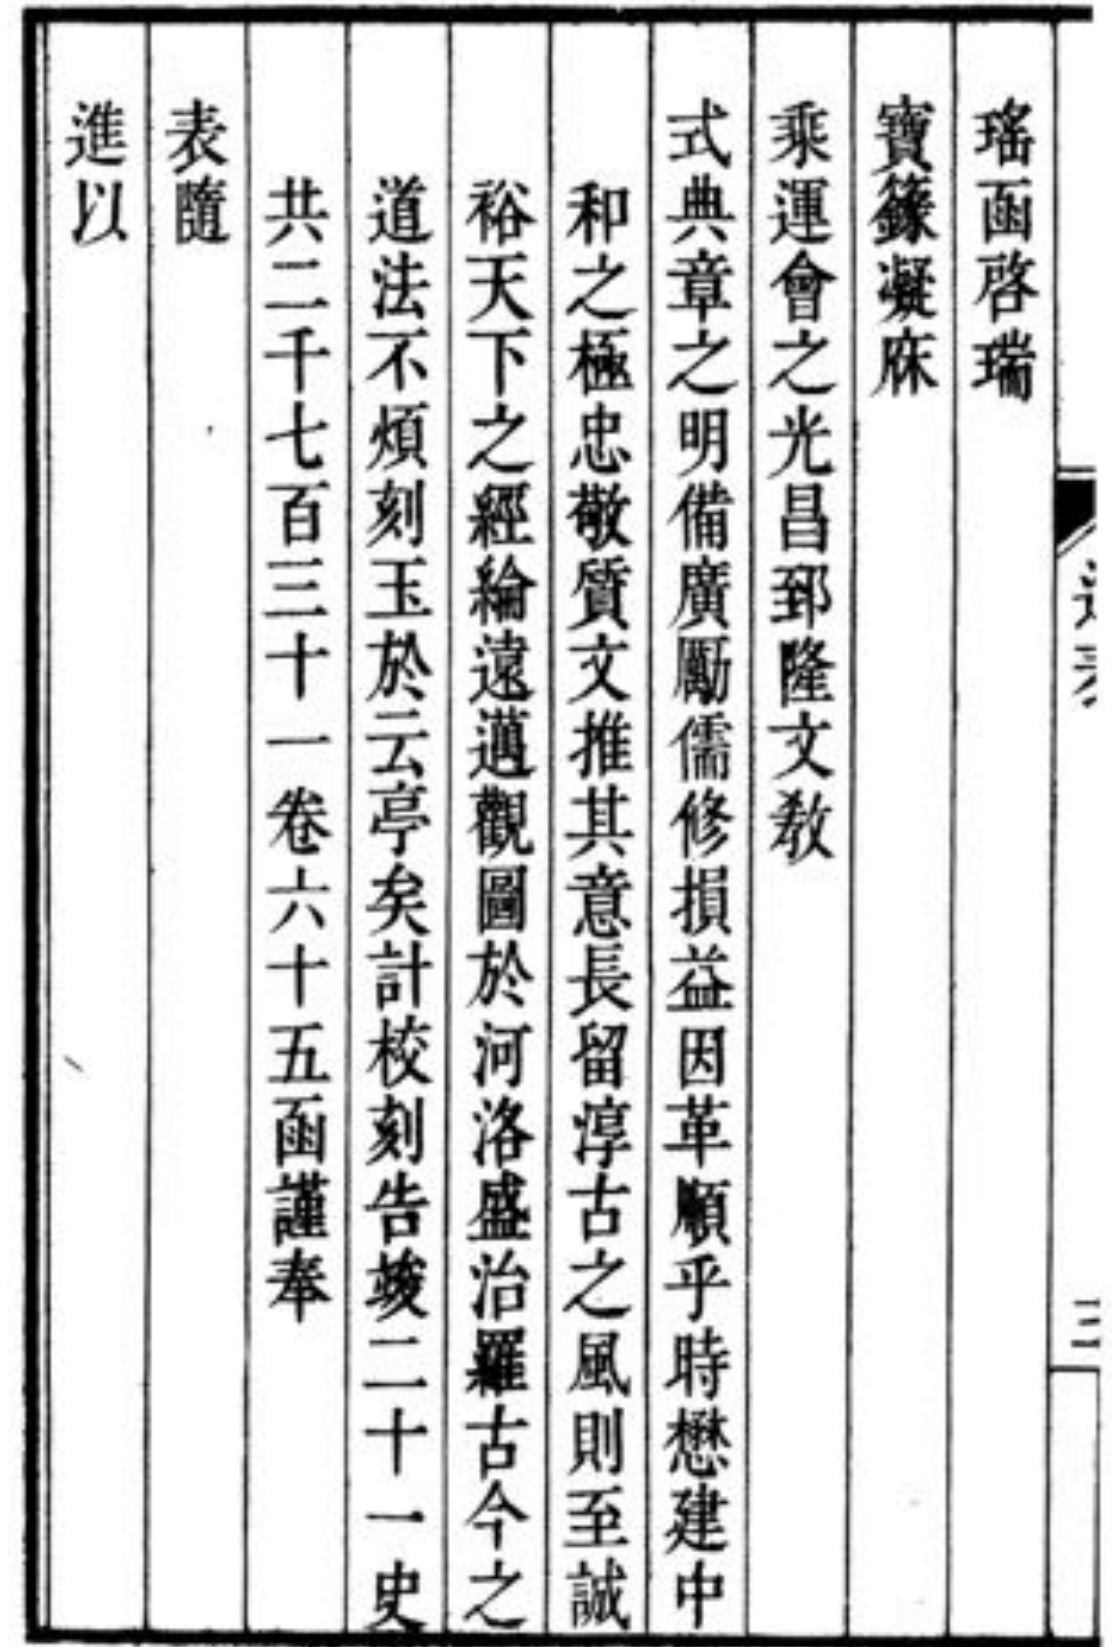 瑤函啓瑞
寶籙凝庥
乘運會之光昌郅隆文敎
式典章之明備廣勵儒修損益因革順乎時懋建中
和之極忠敬質文推其意長留淳古之風則至誠
裕天下之經綸遠邁觀圖於河洛盛治羅古今之
道法不煩刻玉於云亭矣計校刻告竣二十一史
共二千七百三十一卷六十五函謹奉
表隨
進以
三